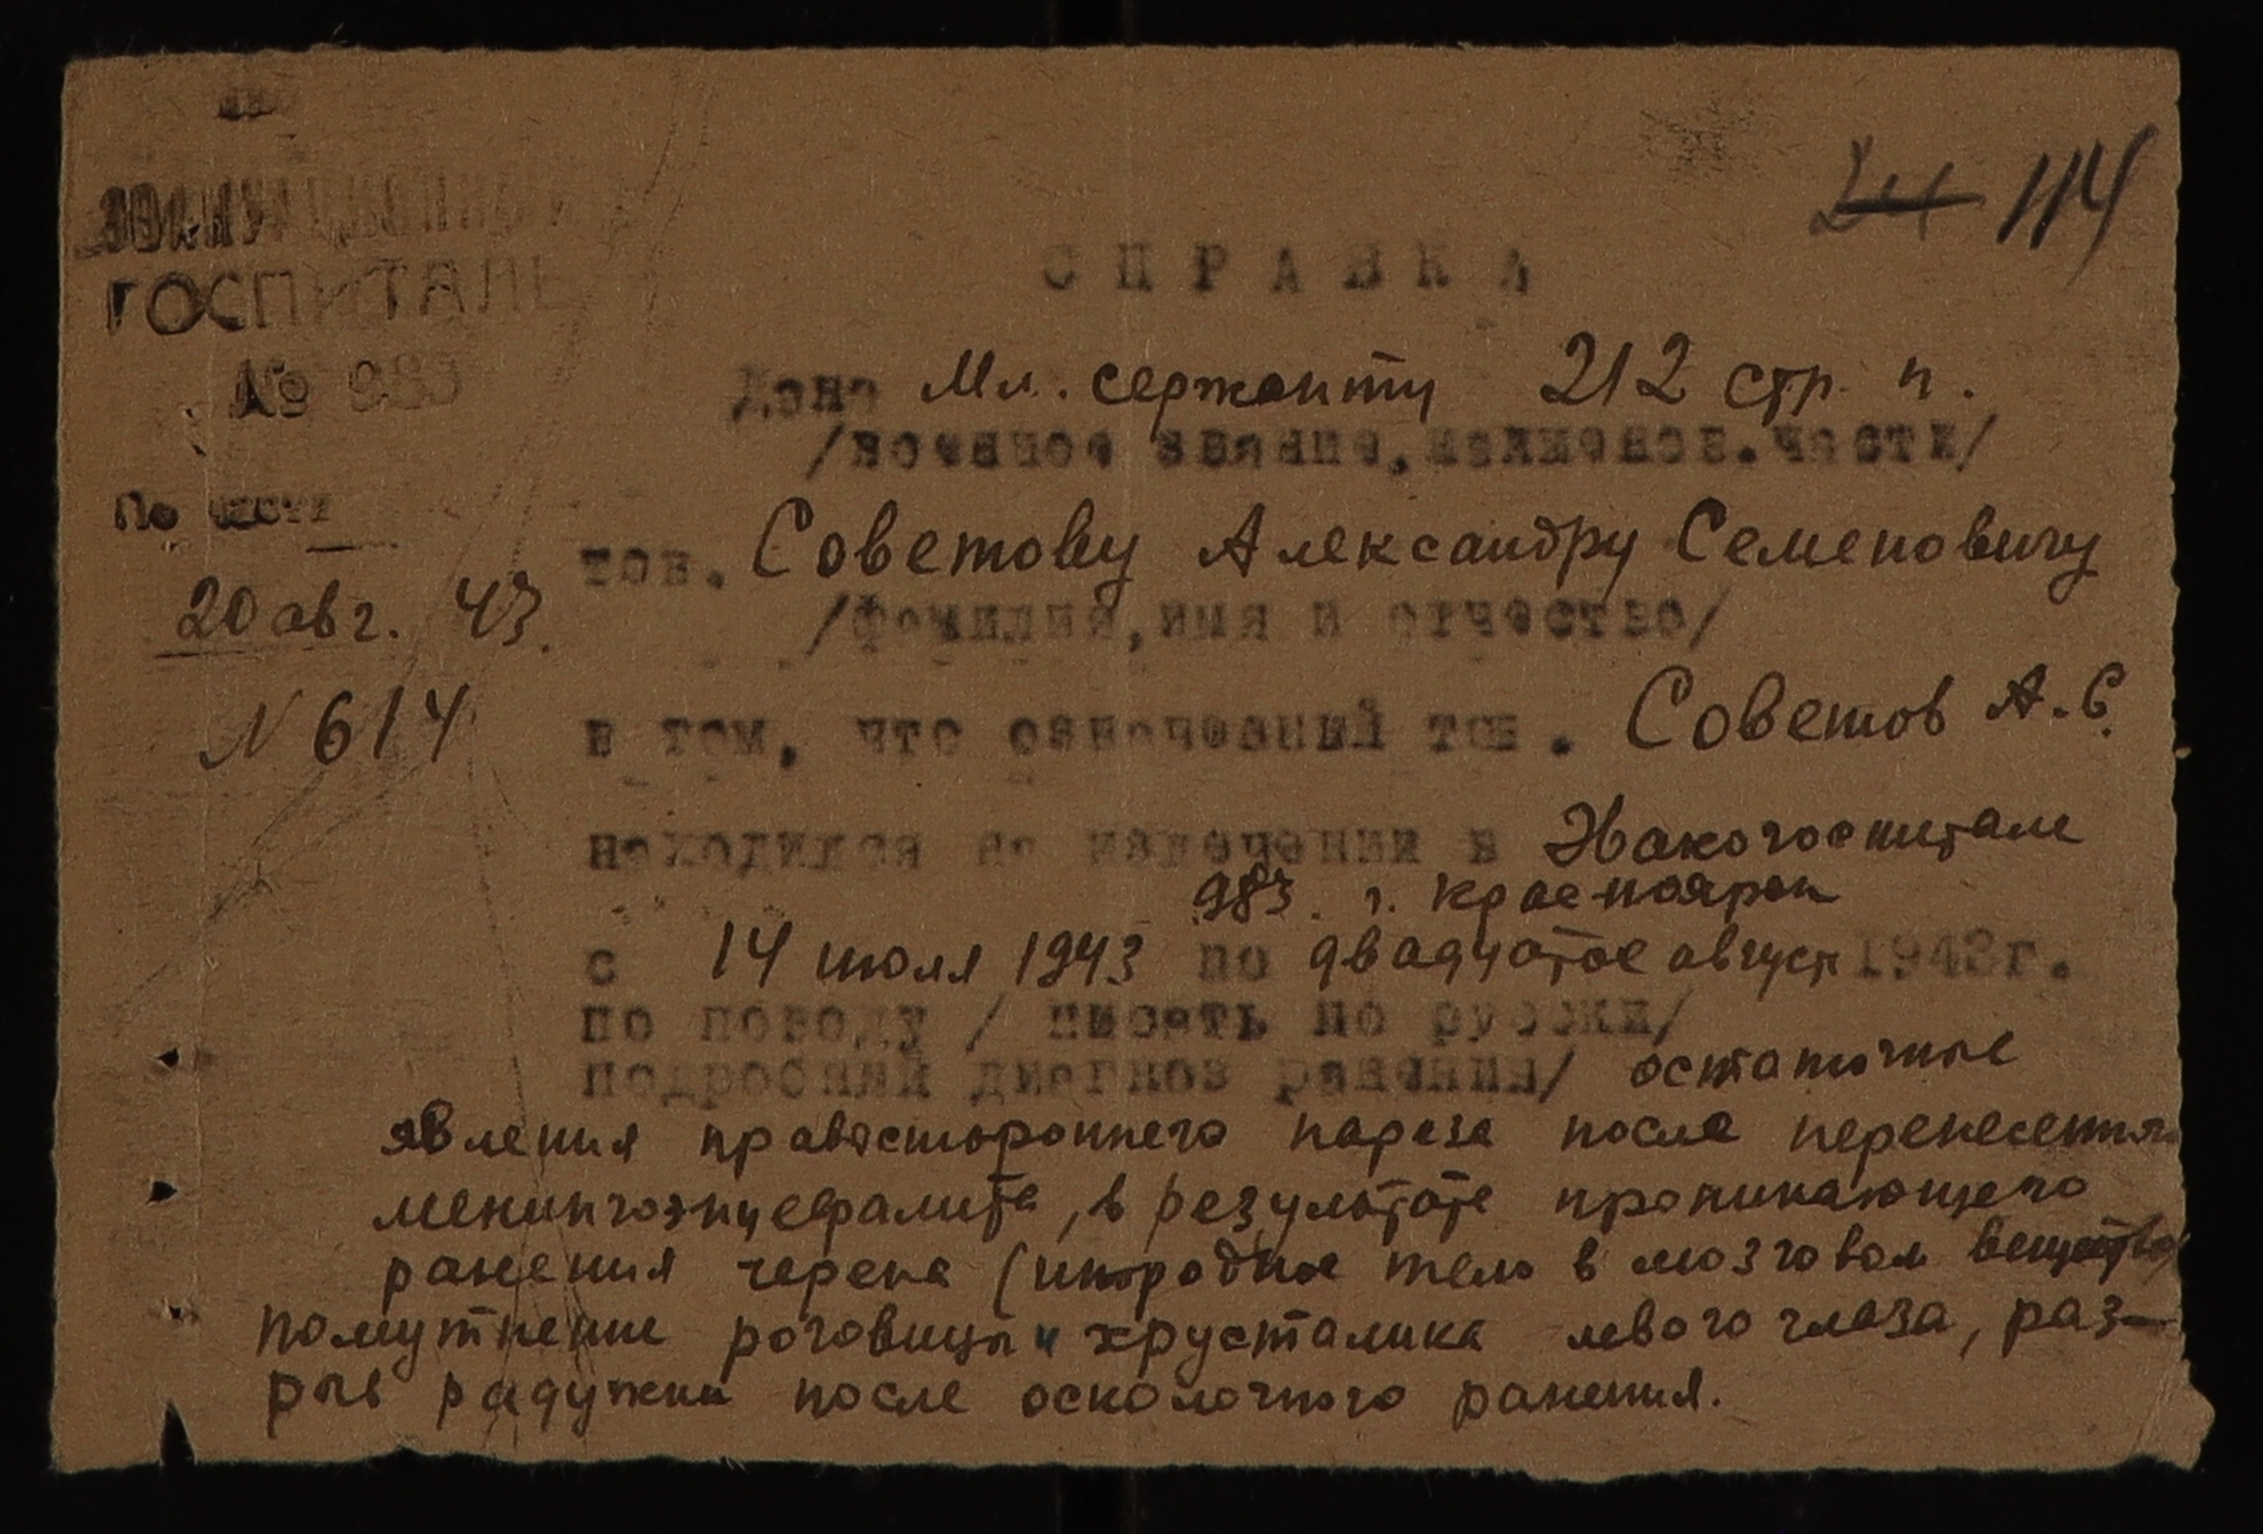 ~~24~~ 114
ЭВАКУАЦИОННЫЙ
ГОСПИТАЛЬ
№ 983
По части
20 авг. 43.
N 614
СПРАВКА
Дана Мл. сержанту 212 стр. п.
/военное звание, наименов. части/
тов. Советову Александру Семеновичу
/фамилия, имя и отчество/
в том, что означенный тов. Советов А. С.
находился на излечении в Эвакогоспитале
983. г. Красноярск
с 14 июля 1943 по двадцатое август 1943г.
по поводу / писать по русски/
подробный диагноз ранения/ остаточные
явления правостороннего пареза после перенесения
менингоэнцефалита, в результате проникающего
ранения черепа (инородное тело в мозговом веществе)
помутнение роговицы и хрусталика левого глаза, раз-
рыв радужки после осколочного ранения.